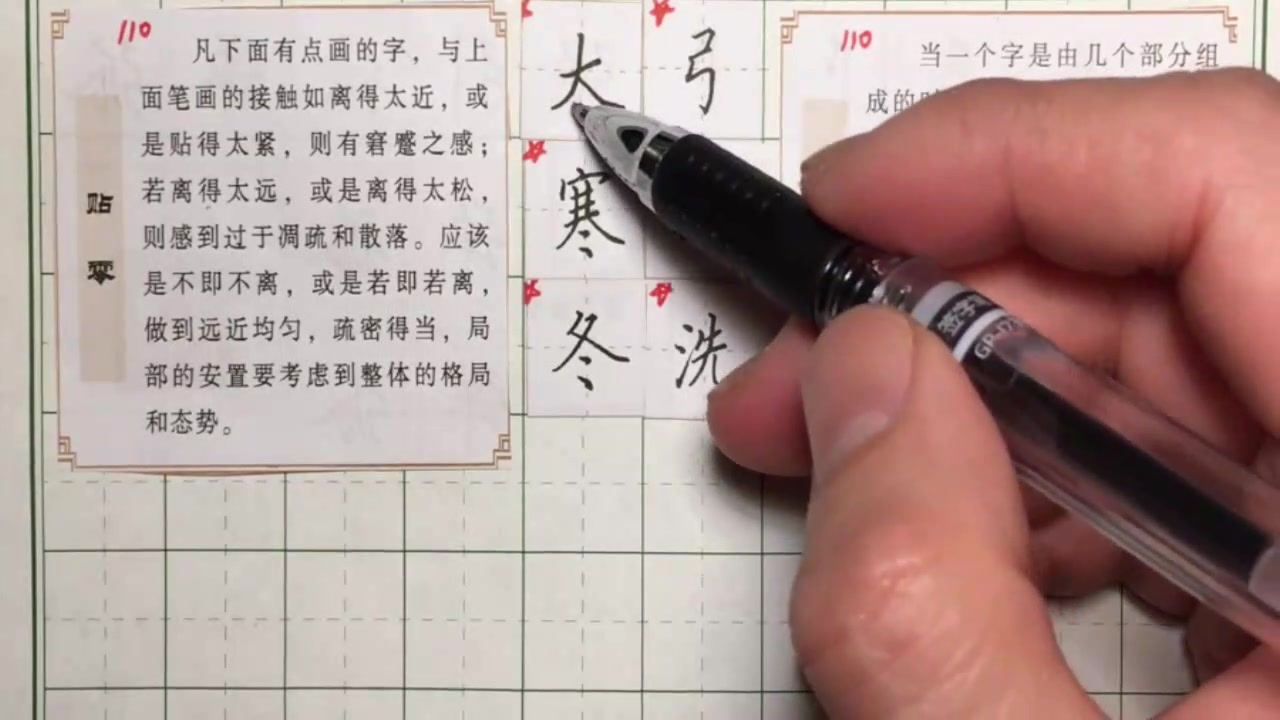 110
凡下面有点画的字，与上
面笔画的接触如离得太近，或
是贴得太紧，则有窘蹙之感；
若离得太远，或是离得太松，
则感到过于凋疏和散落。应该
是不即不离，或是若即若离，
做到远近均匀，疏密得当，局
部的安置要考虑到整体的格局
和态势。
贴零
大
弓
寒
冬
洗
110
当一个字是由几个部分组
成的
签字笔